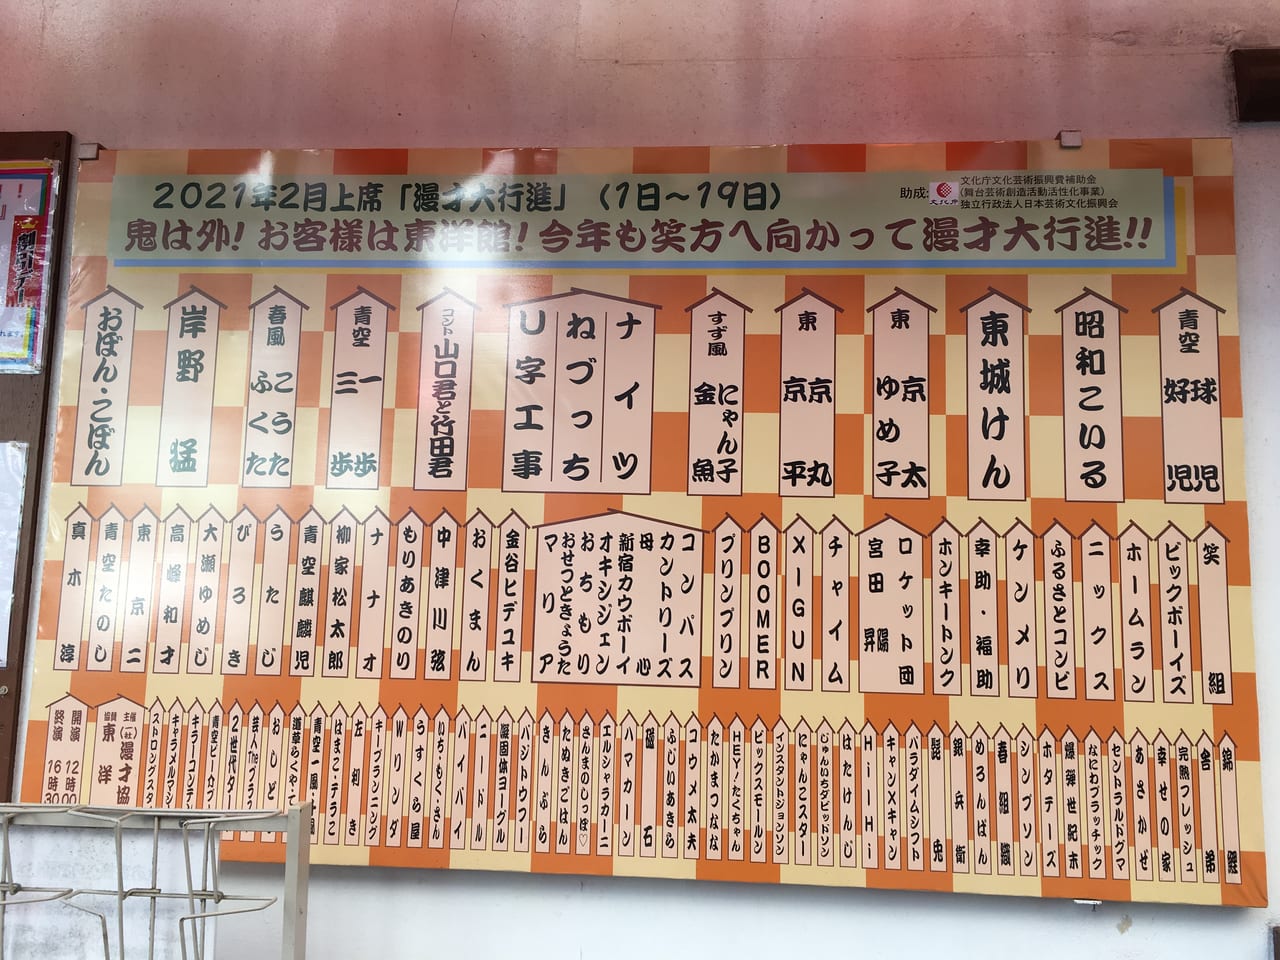 2021年2月上席「漫才大行進」（1日～19日）
助成:
文化庁文化芸術振興費補助金
（舞台芸術創造活動活性化事業）
独立行政法人日本芸術文化振興会
鬼は外！お客様は東洋館！今年も笑方へ向かって漫才大行進!!
青空 球児 好児
昭和こいる
東城けん
東 京太 ゆめ子
東 京丸 京平
すず風 にゃん子 金魚
ナイツ
ねづっち
U字工事
コント山口君と竹田君
青空 一歩 三歩
春風 こうた ふくた
岸野 猛
おぼん・こぼん
笑組
ビックボーイズ
ホームラン
ニックス
ふるさとコンビ
ケンメリ
幸助・福助
ホンキートンク
ロケット団
宮田 陽 昇
チャイム
XIGUN
BOOMER
プリンプリン
コンパス
カントリーズ
母心
新宿カウボーイ
オキシジェン
おちもり
おせつときょうた
マリア
金谷ヒデユキ
おくまん
中津川弦
もりあきのり
ナナオ
柳家松太郎
青空麒麟児
うたじ
ぴろき
大瀬ゆめじ
高峰和才
東京二
青空たのし
真木淳
錦鯉
舎弟
完熟フレッシュ
幸せの家
あさかぜ
セントラルドグマ
なにわプラッチック
爆弾世紀末
ホタテーズ
シンプソン
春組織
めろんぱん
銀兵衛
毘兎
パラダイムシフト
キャン×キャン
HiiHi
はたけんじ
じゅんいちダビッドソン
にゃんこスター
インスタントジョンソン
ビックスモールン
HEY！たくちゃん
たかまつなな
コウメ太夫
ふじいあきら
磁石
ハマカーン
エルシャラカーニ
さんまのしっぽ♡
たぬきごはん
きんぷら
パジトウフー
凝固体ヨーグル
ニードル
パイパイ
いち・もくさん
うすくら屋
Wリンダ
キープランニング
左利き
はまこ・テラこ
青空一風
道草らくや
おしどり
芸人Theブラス
2世代ター
青空ピーカブー
キラーコンテ
キャラメルマシ
ストロングスタ
主催 （社）漫才協
協賛 東洋
開演 12時00
終演 16時30